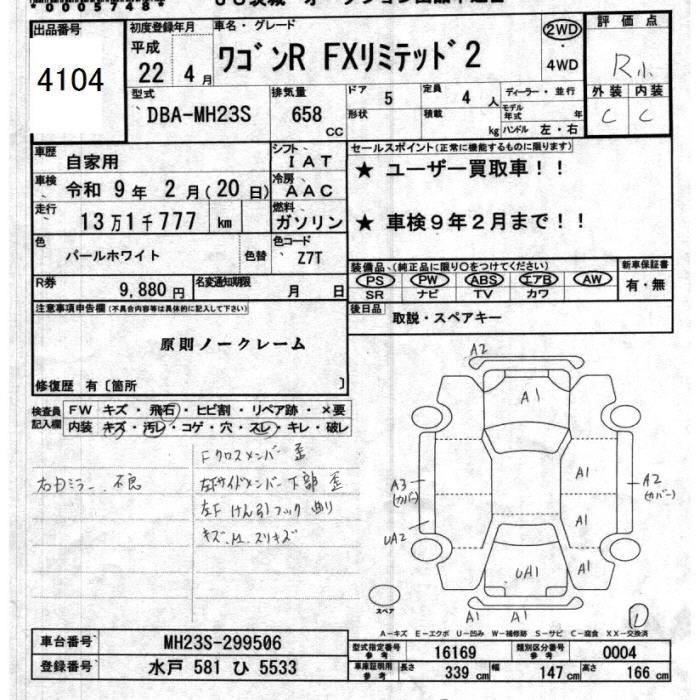 0005748
出品番号
4104
初度登録年月
平成
22 4月
車名・グレード
ワゴンR FXリミテッド2
2WD
・
4WD
評価点
R小
外装 内装
C C
型式
DBA-MH23S
排気量
658 CC
ドア
5
定員
4 人
形状
積載
kg
ディーラー・並行
モデル年式 年
ハンドル 左・右
車歴
自家用
シフト
IAT
車検
令和 9年 2月(20日)
冷房
AAC
走行
13万1千777 km
燃料
ガソリン
色
パールホワイト
色替
色コード
Z7T
R券
9,880円
名変通知期限
月 日
セールスポイント(正常に機能するものに限ります)
★ ユーザー買取車!!
★ 車検9年2月まで!!
装備品、(純正品に限り○をつけてください)
PS PW ABS エアB AW
SR ナビ TV カワ
新車保証書
有・無
後日品
取説・スペアキー
注意事項申告欄(不具合内容等は具体的に記入して下さい)
原則ノークレーム
修復歴 有〔箇所 〕
検査員記入欄
FW キズ・飛石・ヒビ割・リペア跡・×要
内装 キズ・汚レ・コゲ・穴・スレ・キレ・破レ
Fクロスメンバー 歪
右Dミラー 不良
左Fサイドメンバー下部 歪
左F けん引フック 曲り
キズ、M、スリキズ
A2
A1
A3
(カバー)
A1
A2
(カバー)
A1
UA2
UA1
A1
A1 A1
スペア
A-キズ E-エクボ U-凹み W-補修跡 S-サビ C-腐食 XX-交換済
車台番号
MH23S-299506
登録番号
水戸 581 ひ 5533
型式指定番号
参考
16169
類別区分番号
参考
0004
車庫証明用
参考
長さ
339 cm
幅
147 cm
高さ
166 cm